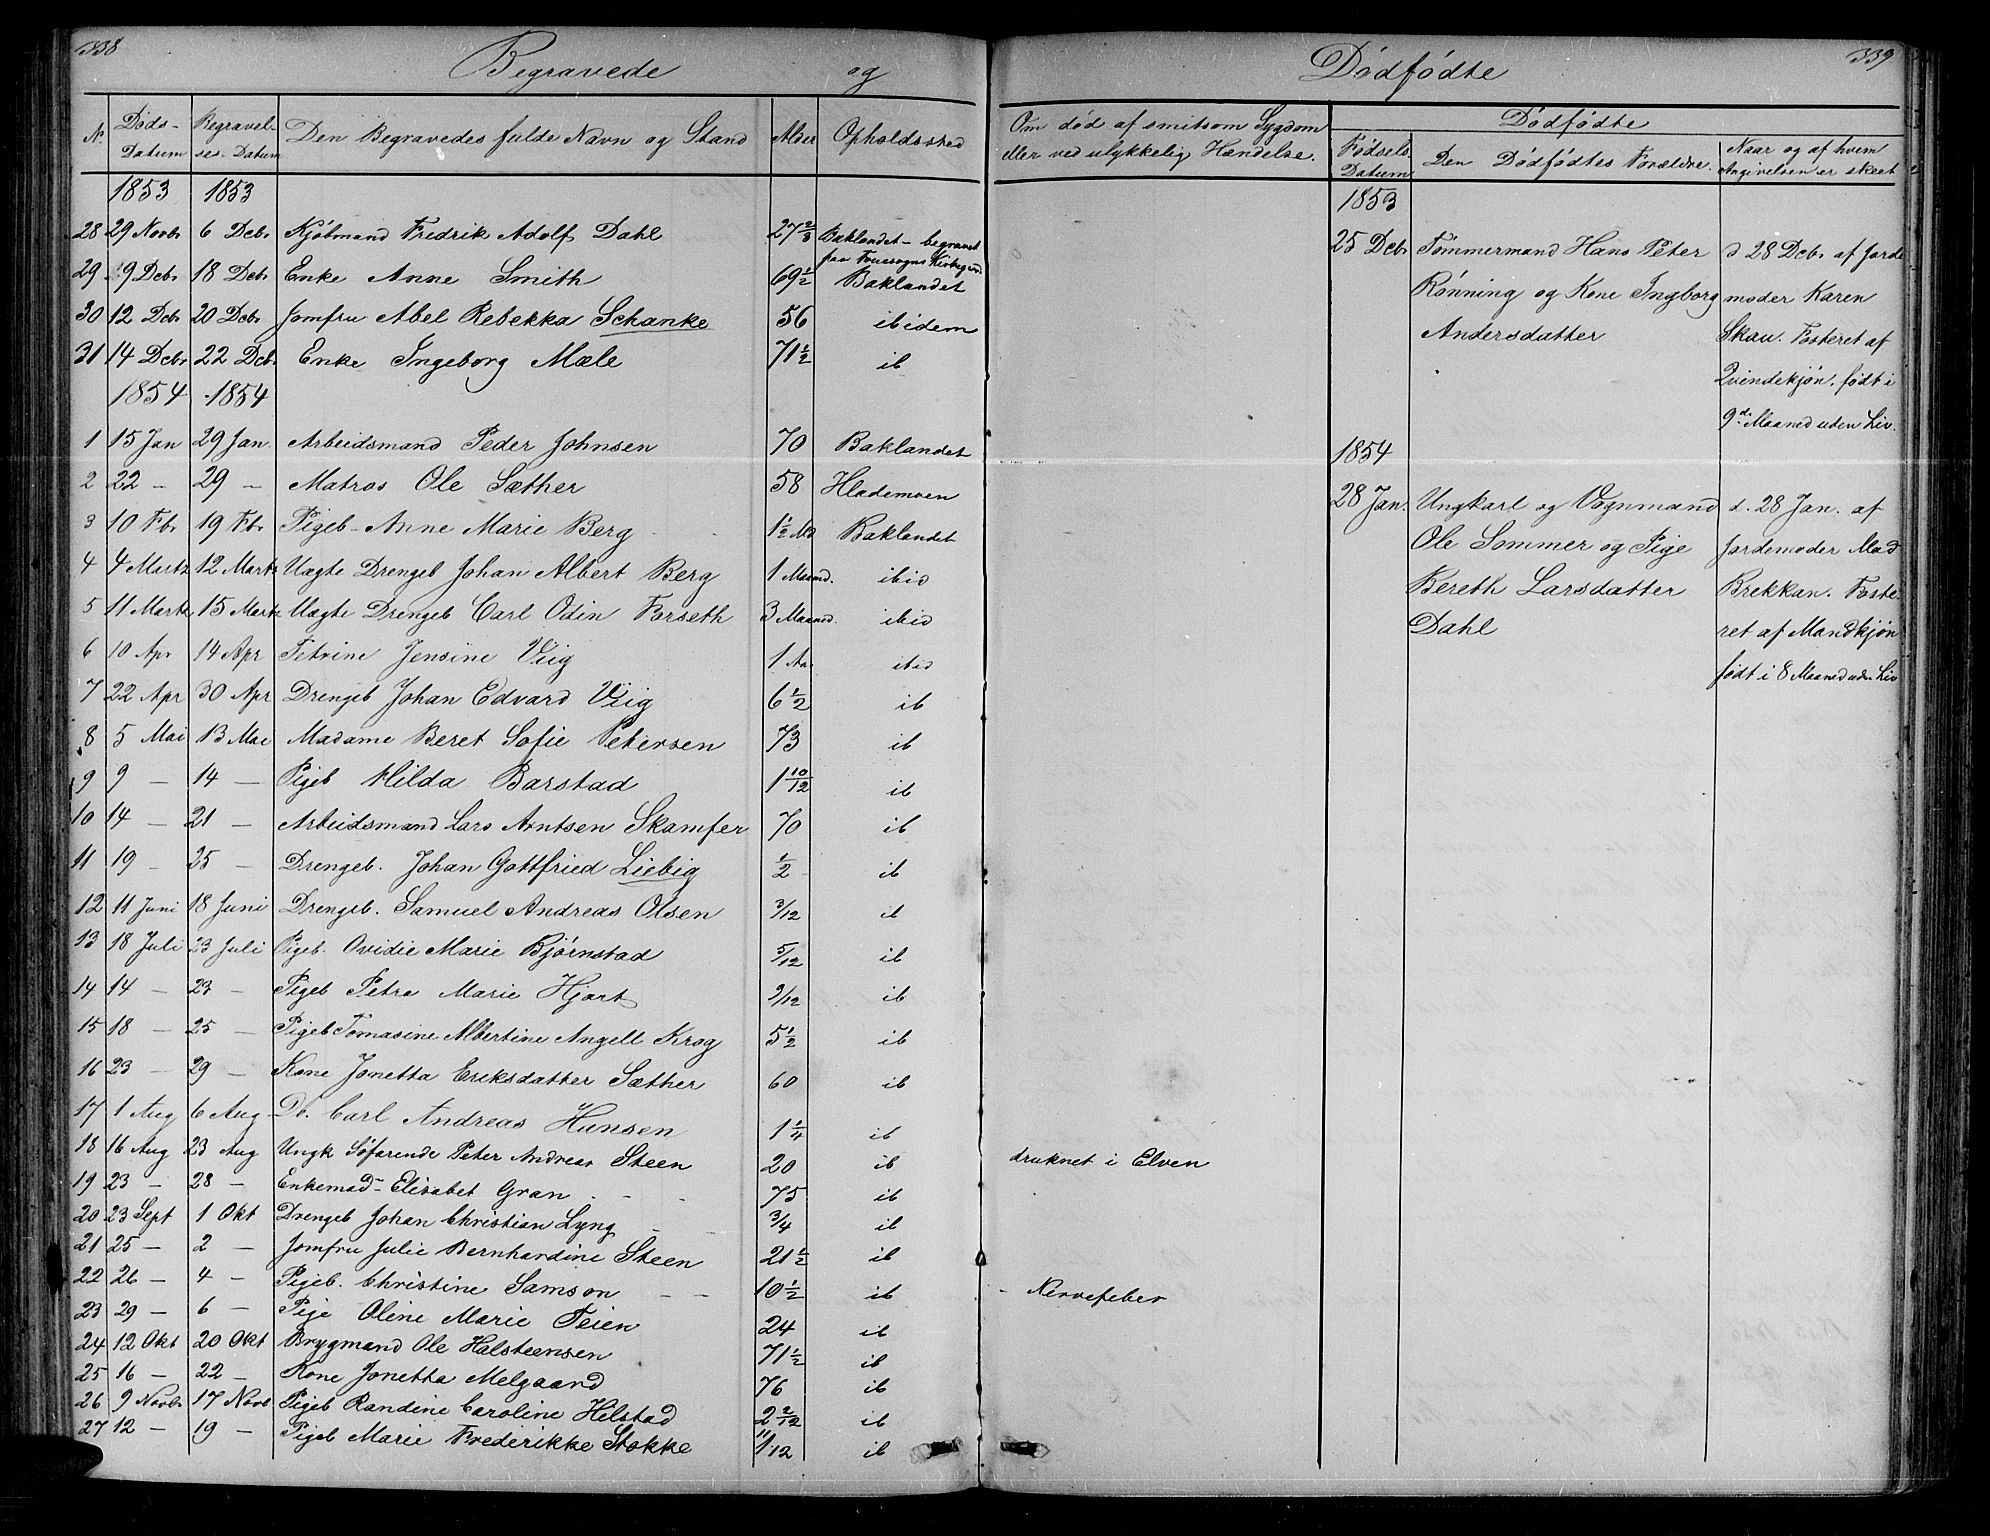 338
Begravede og
N. Døds-Datum Begravel-ses-Datum Den Begravedes fulde Navn og Stand Alder Opholdssted
1853 1853
28 29 Novbr 6 Dcbr Kjøbmand Fredrik Adolf Dahl 27 2/3 Baklandet - begravet paa Fruesogns Kirkegrd
29 9 Dcbr 18 Dcbr Enke Anne Smith 69 1/2 Baklandet
30 12 Dcbr 20 Dcbr Jomfru Abel Rebekka Schanke 56 ibidem
31 14 Dcbr 22 Dcbr Enke Ingeborg Mæle 71 1/2 ib
1854 1854
1 15 Jan 29 Jan. Arbeidsmand Peder Johnsen 70 Baklandet
2 22 - 29 - Matros Ole Sæther 58 Hlademoen
3 10 Fbr 19 Fbr Pigeb- Anne Marie Berg 1 1/2 Md Baklandet
4 4 Martz 12 Martz Uægte Drengeb Johan Albert Berg 1 Maaned. ibid
5 11 Martz 15 Martz Uægte Drengeb Carl Odin Forseth 3 Maaned. ibid
6 10 Apr 14 Apr Petrine Jensine Viig 1 Aar ibid
7 22 Apr 30 Apr Drengeb Johan Edvard Viig 6 1/2 ib
8 5 Mai 13 Mai Madame Beret Sofie Petersen 73 ib
9 9 - 14 - Pigeb Hilda Barstad 1 10/12 ib
10 14 - 21 - Arbeidsmand Lars Arntsen Skamfer 70 ib
11 19 - 25 - Drengeb. Johan Gottfried Liebig 1/2 ib
12 11 Juni 18 Juni Drengeb. Samuel Andreas Olsen 3/12 ib
13 18 Juli 23 Juli Pigeb. Ovidie Marie Bjørnstad 5/12 ib
14 14 - 23 - Pigeb Petra Marie Hjort 2/12 ib
15 18 - 25 - Pigeb Tomasine Albertine Angell Krog 5 1/2 ib
16 23 - 29 - Kone Jonetta Eriksdatter Sæther 60 ib
17 1 Aug 6 Aug Db. Carl Andreas Hansen 1 1/4 ib
18 16 Aug 23 Aug Ungk Søfarende Peter Andreas Steen 20 ib
19 23 - 28 - Enkemad- Elisabet Gran - - - 75 ib
20 23 Sept 1 Okt Drengeb Johan Christian Lyng - 3/4 ib
21 25 - 2 - Jomfru Julie Bernhardine Steen 21 1/2 ib
22 26 - 4 - Pigeb. Christine Samson - - 10 1/2 ib
23 29 - 6 - Pige Oline Marie Feien 24 ib
24 12 Okt 20 Okt Brygmand Ole Halsteensen 71 1/2 ib
25 16 - 22 - Kone Jonetta Melgaard 76 ib
26 9 Novbr 17 Novb Pigeb Randine Caroline Hilstad 2 2/12 ib
27 12 - 19 - Pigeb Marie Frederikke Stokke 11/12 ib
339
Dødfødte
Om død af smitsom Sygdom
eller ved ulykkelig Hændelse.
Dødfødte
Fødsels Datum Den Dødfødtes Forældre. Naar og af hvem Angivelsen er skeet
1853
25 Dcbr Tømmermand Hans Peter d 28 Dcbr af Jorde
Rønning og Kone Ingborg moder Karen
Andersdatter Skau. Fosteret af
Qvindekjøn, født i
9de Maaned uden Liv.
1854
28 Jan. Ungkarl og Vognmand d. 28 Jan. af
Ole Sommer og Pige Jordemoder Mad
Bereth Larsdatter Brekkan. Foste
Dahl ret af Mandkjøn
født i 8 Maaned uden Liv
druknet i Elven
- Nervefeber